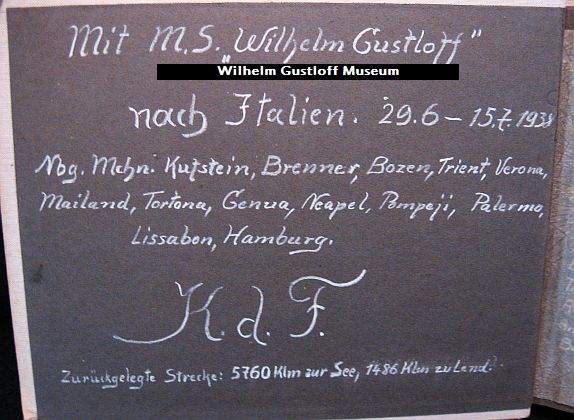 Mit M.S. „Wilhelm Gustloff"
Wilhelm Gustloff Museum
nach Italien. 29.6 – 15.7.1938
Nbg. Mchn. Kufstein, Brenner, Bozen, Trient, Verona,
Mailand, Tortona, Genua, Neapel, Pompeji, Palermo,
Lissabon, Hamburg.
K. d. F.
Zurückgelegte Strecke: 5760 Klm zur See, 1486 Klm zu Land.